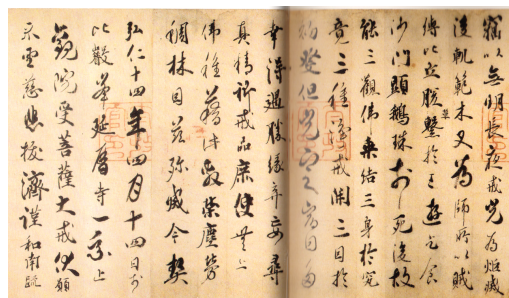 竊以無明長夜戒光為炬滅
後軌範木叉為師所以賊
縛比丘脱草繫於王遊乞食
沙門顕鵝珠於死後故
能三觀佛乗結三身於究
竟三種淨戒開三因於
始發但光定宿因多
幸得遇勝縁棄妄尋
真精祈戒品庶使無上
佛種萠法教榮塵勞
稠林因茲弥滅今契
弘仁十四年四月十四日於
比叡峯延暦寺一乗止
觀院受菩薩大戒伏願
示霊慈悲拔濟謹和南疏